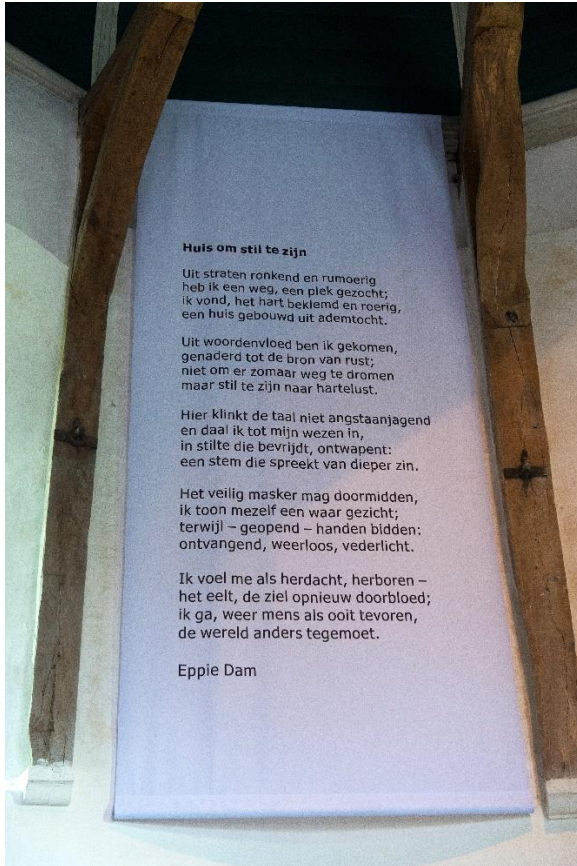 Huis om stil te zijn
Uit straten ronkend en rumoerig
heb ik een weg, een plek gezocht;
ik vond, het hart beklemd en roerig,
een huis gebouwd uit ademtocht.
Uit woordenvloed ben ik gekomen,
genaderd tot de bron van rust;
niet om er zomaar weg te dromen
maar stil te zijn naar hartelust.
Hier klinkt de taal niet angstaanjagend
en daal ik tot mijn wezen in,
in stilte die bevrijdt, ontwapent:
een stem die spreekt van dieper zin.
Het veilig masker mag doormidden,
ik toon mezelf een waar gezicht;
terwijl – geopend – handen bidden:
ontvangend, weerloos, vederlicht.
Ik voel me als herdacht, herboren –
het eelt, de ziel opnieuw doorbloed;
ik ga, weer mens als ooit tevoren,
de wereld anders tegemoet.
Eppie Dam